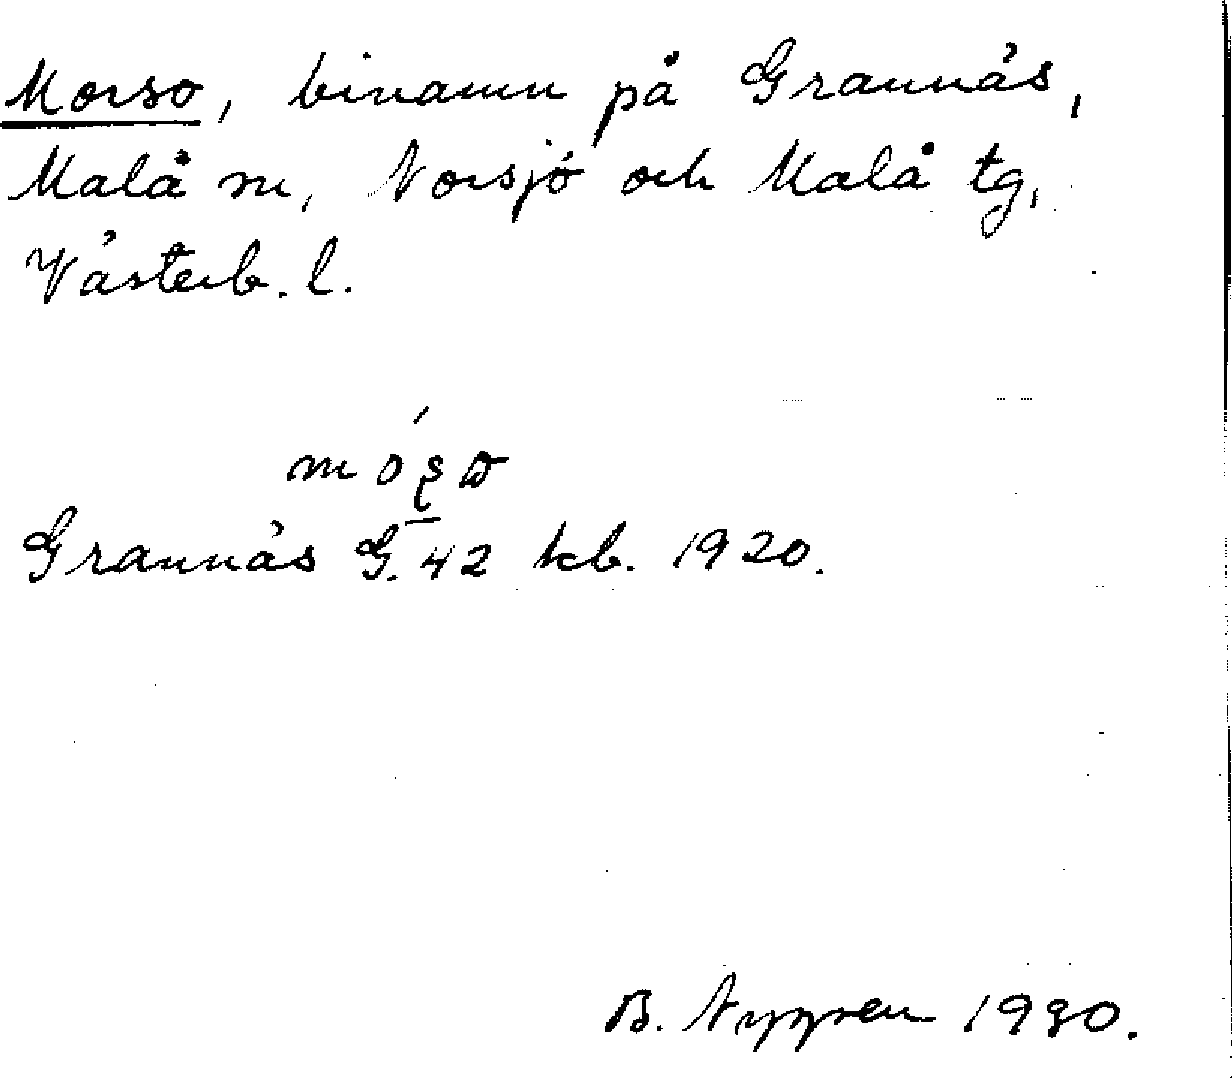 Morso, binamn på Grannäs,
Malå sn, Norsjö och Malå tg,
Västerb. l.
Grannäs G. 42 kb. 1920.
B. Nygren 1930.